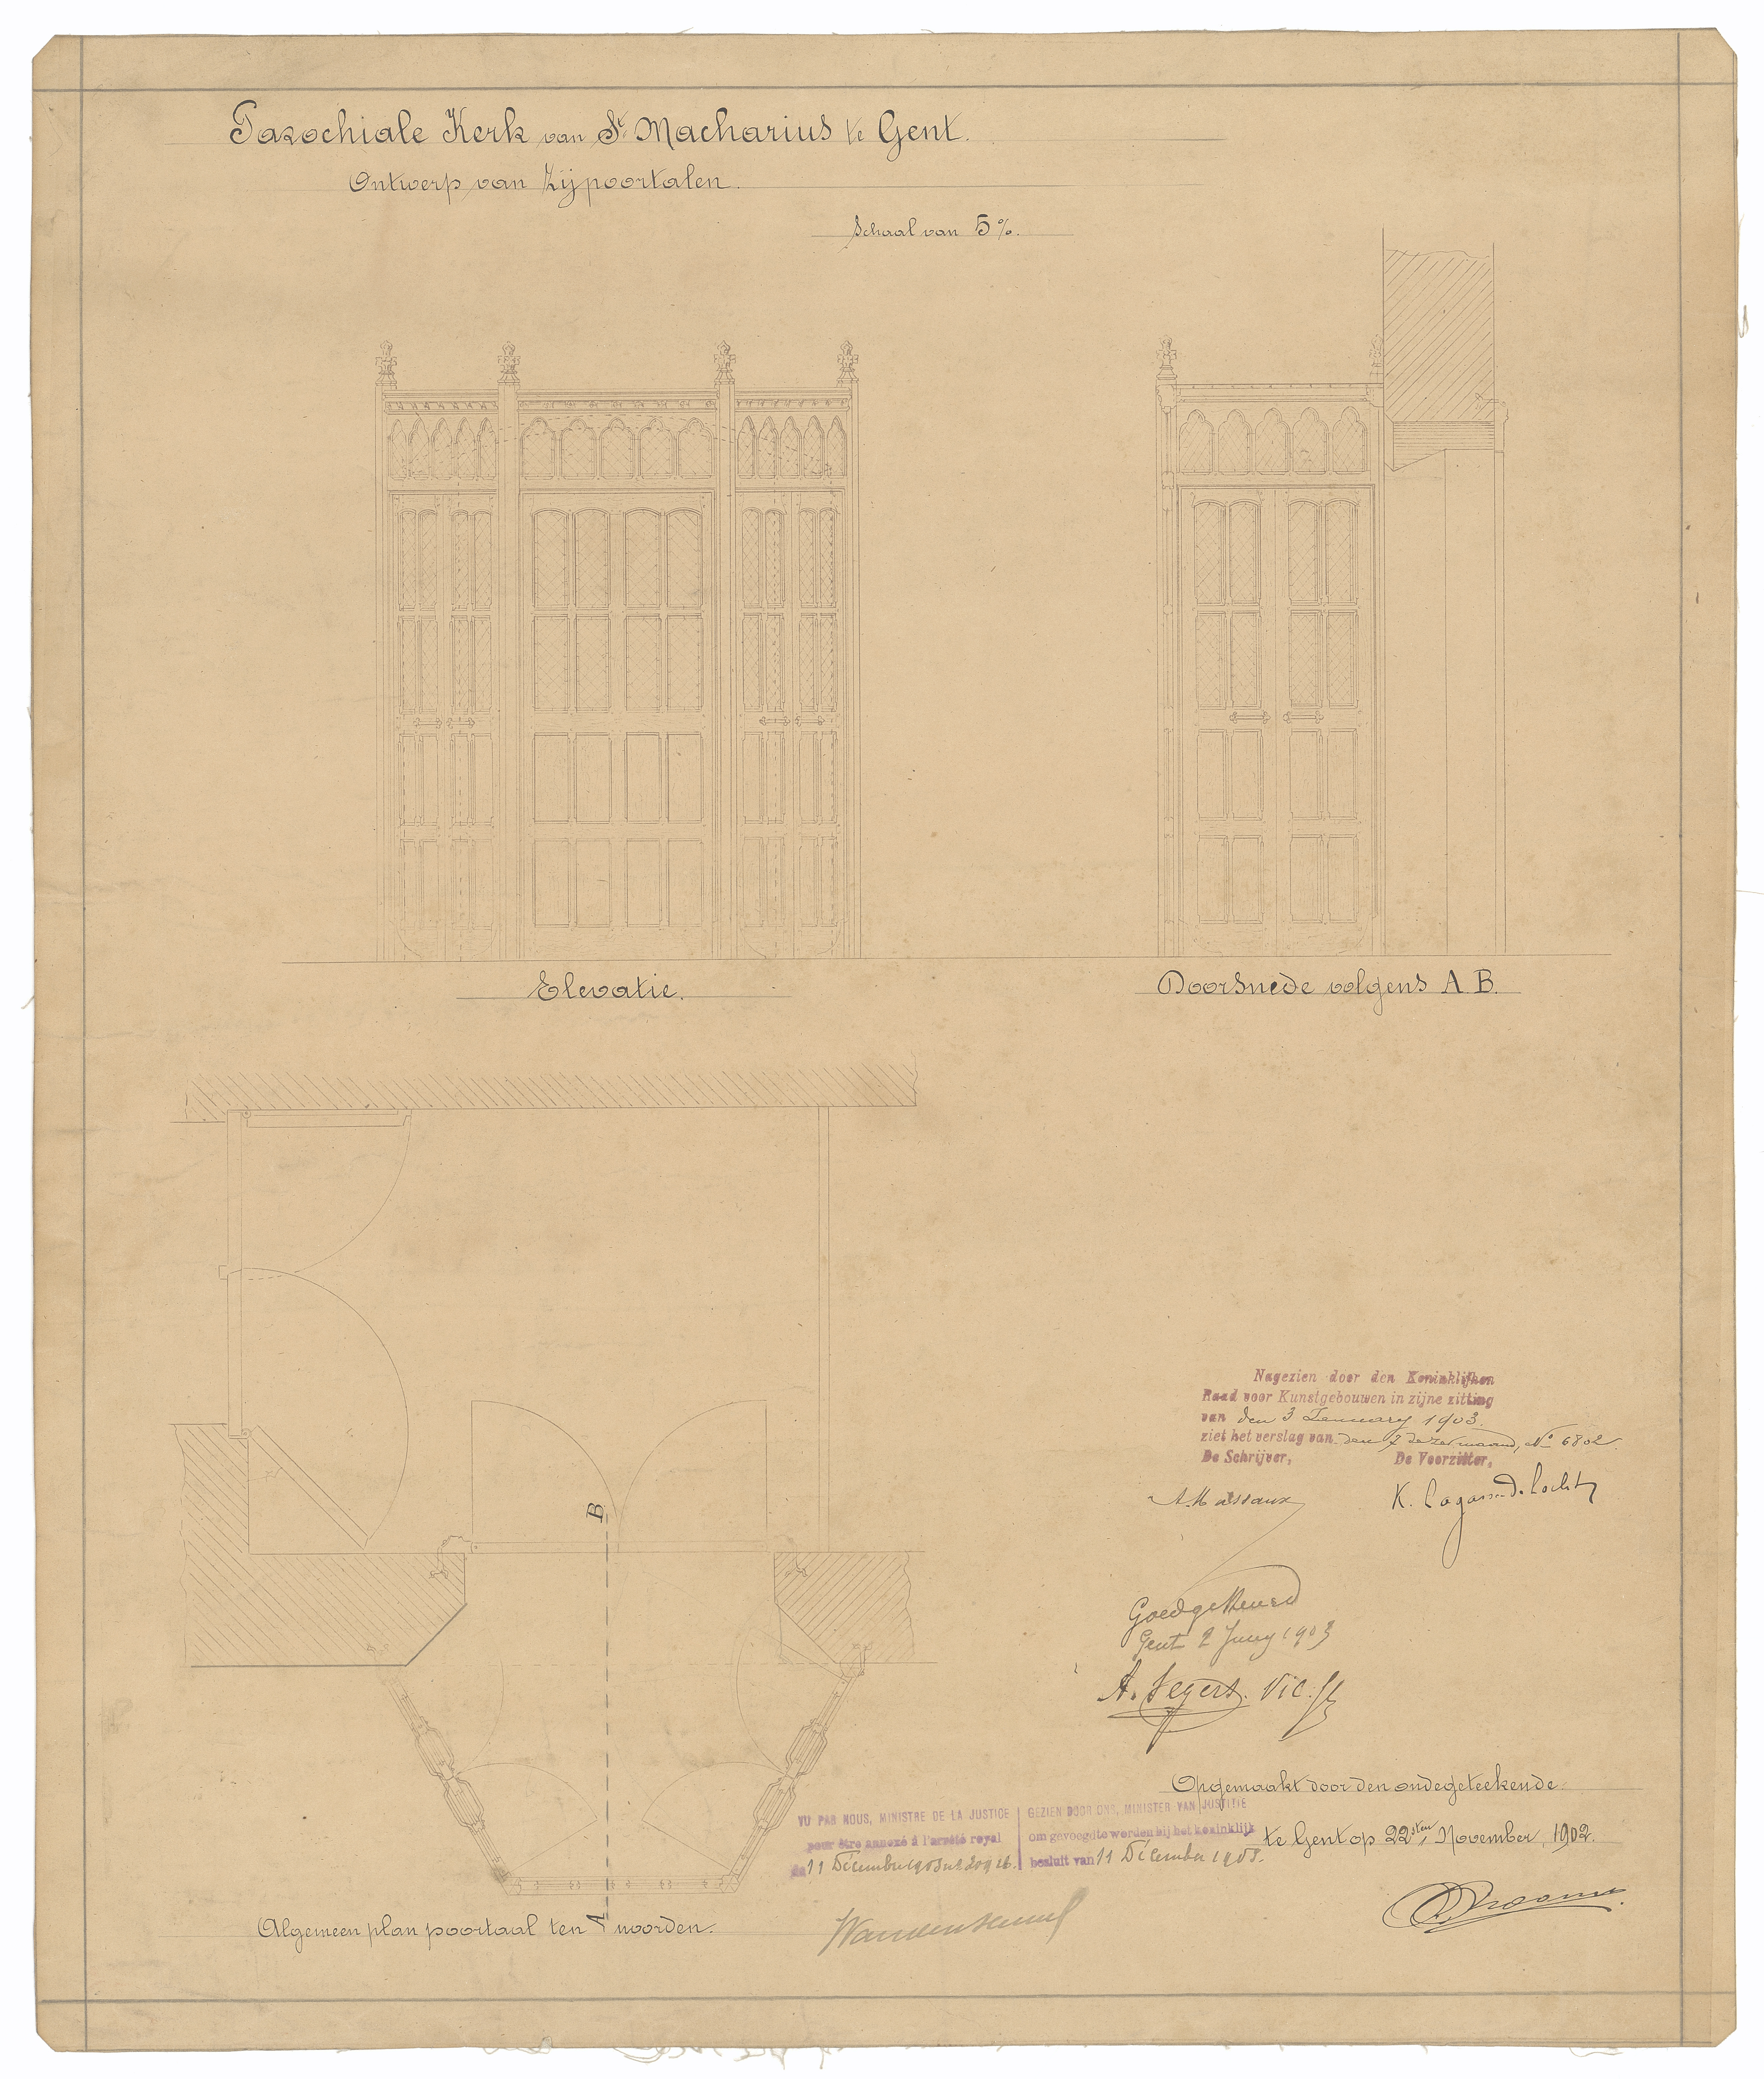 Parochiale Kerk van St. Macharius te Gent.
Ontwerp van Zijpoortalen.
Schaal van 5%.
Elevatie.
Doorsnede volgens A B.
B
Nagezien door den Koninklijken
Raad voor Kunstgebouwen in zijne zitting
van den 3 January 1903.
ziet het verslag van den 7 dezer maand, No 6802.
De Schrijver, De Voorzitter,
A. Massaux K. Lagasse de Locht
Goedgekeurd
Gent 2 Juny 1903
A. Segers. Vic.
Opgemaakt door den ondegeteekende
te Gent op 22sten November, 1902.
VU PAR NOUS, MINISTRE DE LA JUSTICE
pour être annexé à l'arrêté royal
du 11 Décembre 1903
GEZIEN DOOR ONS, MINISTER VAN JUSTITIE
om gevoegd te worden bij het koninklijk
besluit van 11 Décember 1903.
Algemeen plan poortaal ten noorden.
A